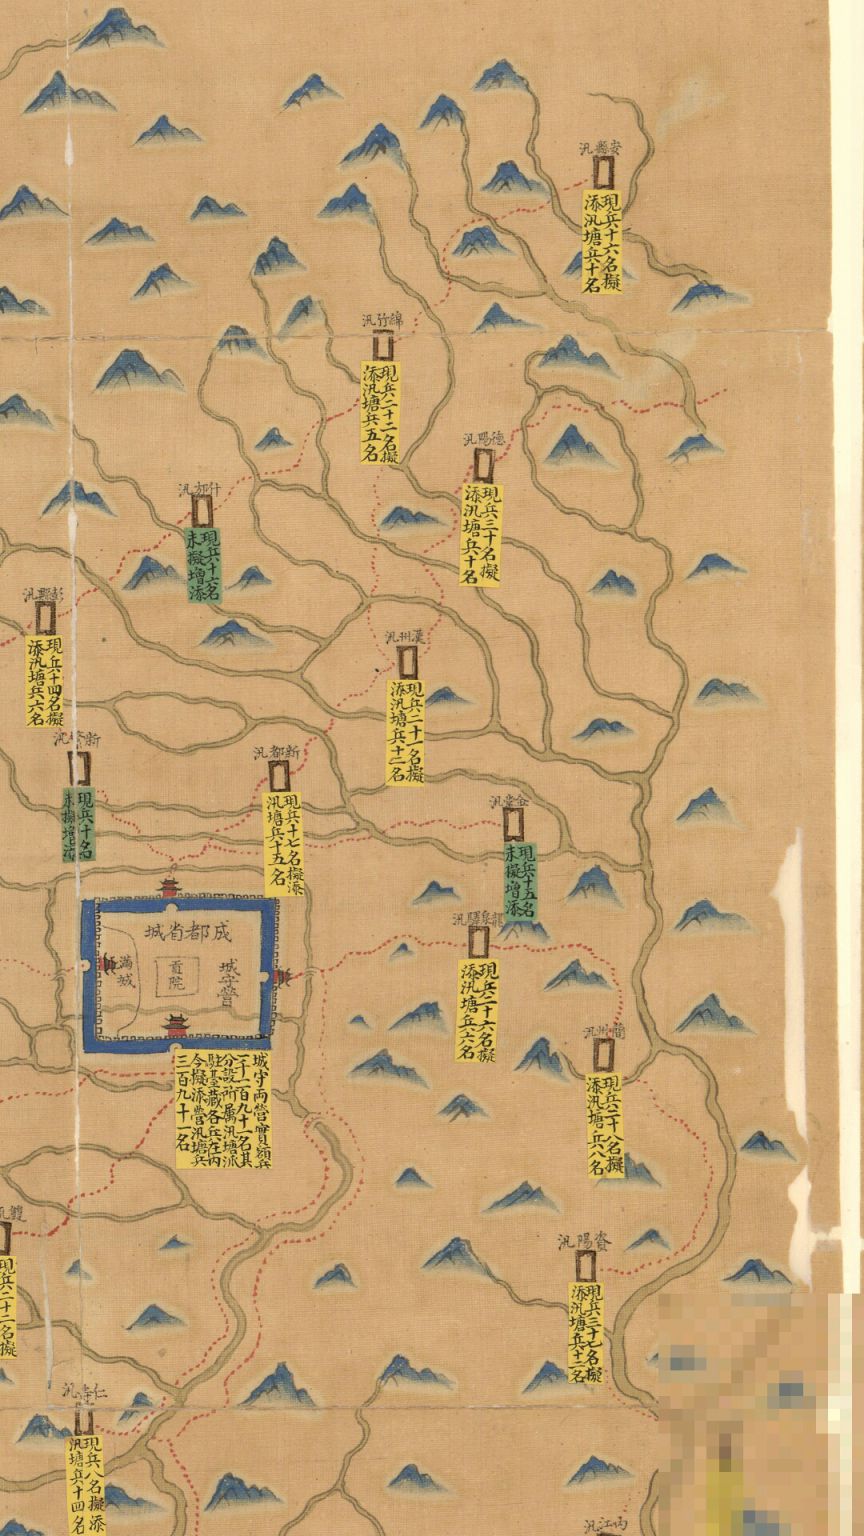 安縣汛
現兵十六名擬
添汛塘兵十名
綿竹汛
現兵二十二名擬
添汛塘兵五名
德陽汛
現兵三十名擬
添汛塘兵十名
什邡汛
現兵十六名
未擬增添
彭縣汛
現兵十四名擬
添汛塘兵六名
漢州汛
現兵二十一名擬
添汛塘兵十二名
新繁汛
現兵十名
未擬增添
新都汛
現兵十七名擬添
汛塘兵十五名
金堂汛
現兵十五名
未擬增添
龍泉驛汛
現兵二十六名擬
添汛塘兵六名
成都省城
滿城
貢院
城守營
城守兩營實額兵
一千一百九十一名其
分設所屬汛塘派
駐臺藏各兵在內
今擬添營汛塘兵
三百九十一名
簡州汛
現兵二十八名擬
添汛塘兵八名
現兵二十二名擬
資陽汛
現兵三十七名擬
添汛塘兵十二名
仁壽汛
現兵八名擬添
汛塘兵十四名
內江汛